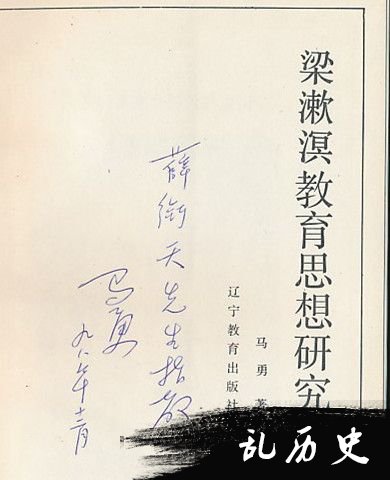 梁漱溟教育思想研究
马勇 著
辽宁教育出版社
薛衔天先生指教
马勇
九八年十二月
乱历史